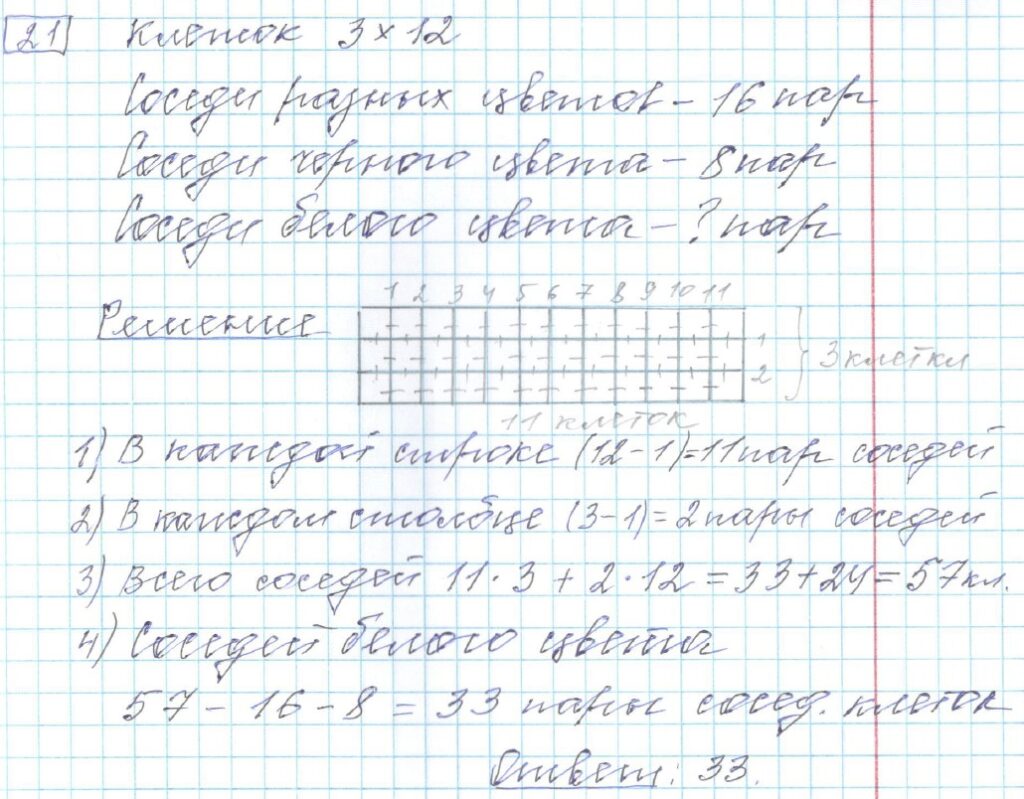 21 Клеток 3 × 12
Соседи разных цветов – 16 пар
Соседи черного цвета – 8 пар
Соседи белого цвета – ? пар
Решение
1 2 3 4 5 6 7 8 9 10 11
1
2
3 клетки
11 клеток
1) В каждой строке (12 - 1) = 11 пар соседей
2) В каждом столбце (3 - 1) = 2 пары соседей
3) Всего соседей 11 · 3 + 2 · 12 = 33 + 24 = 57 кл.
4) Соседей белого цвета
57 - 16 - 8 = 33 пары сосед. клеток
Ответ: 33.